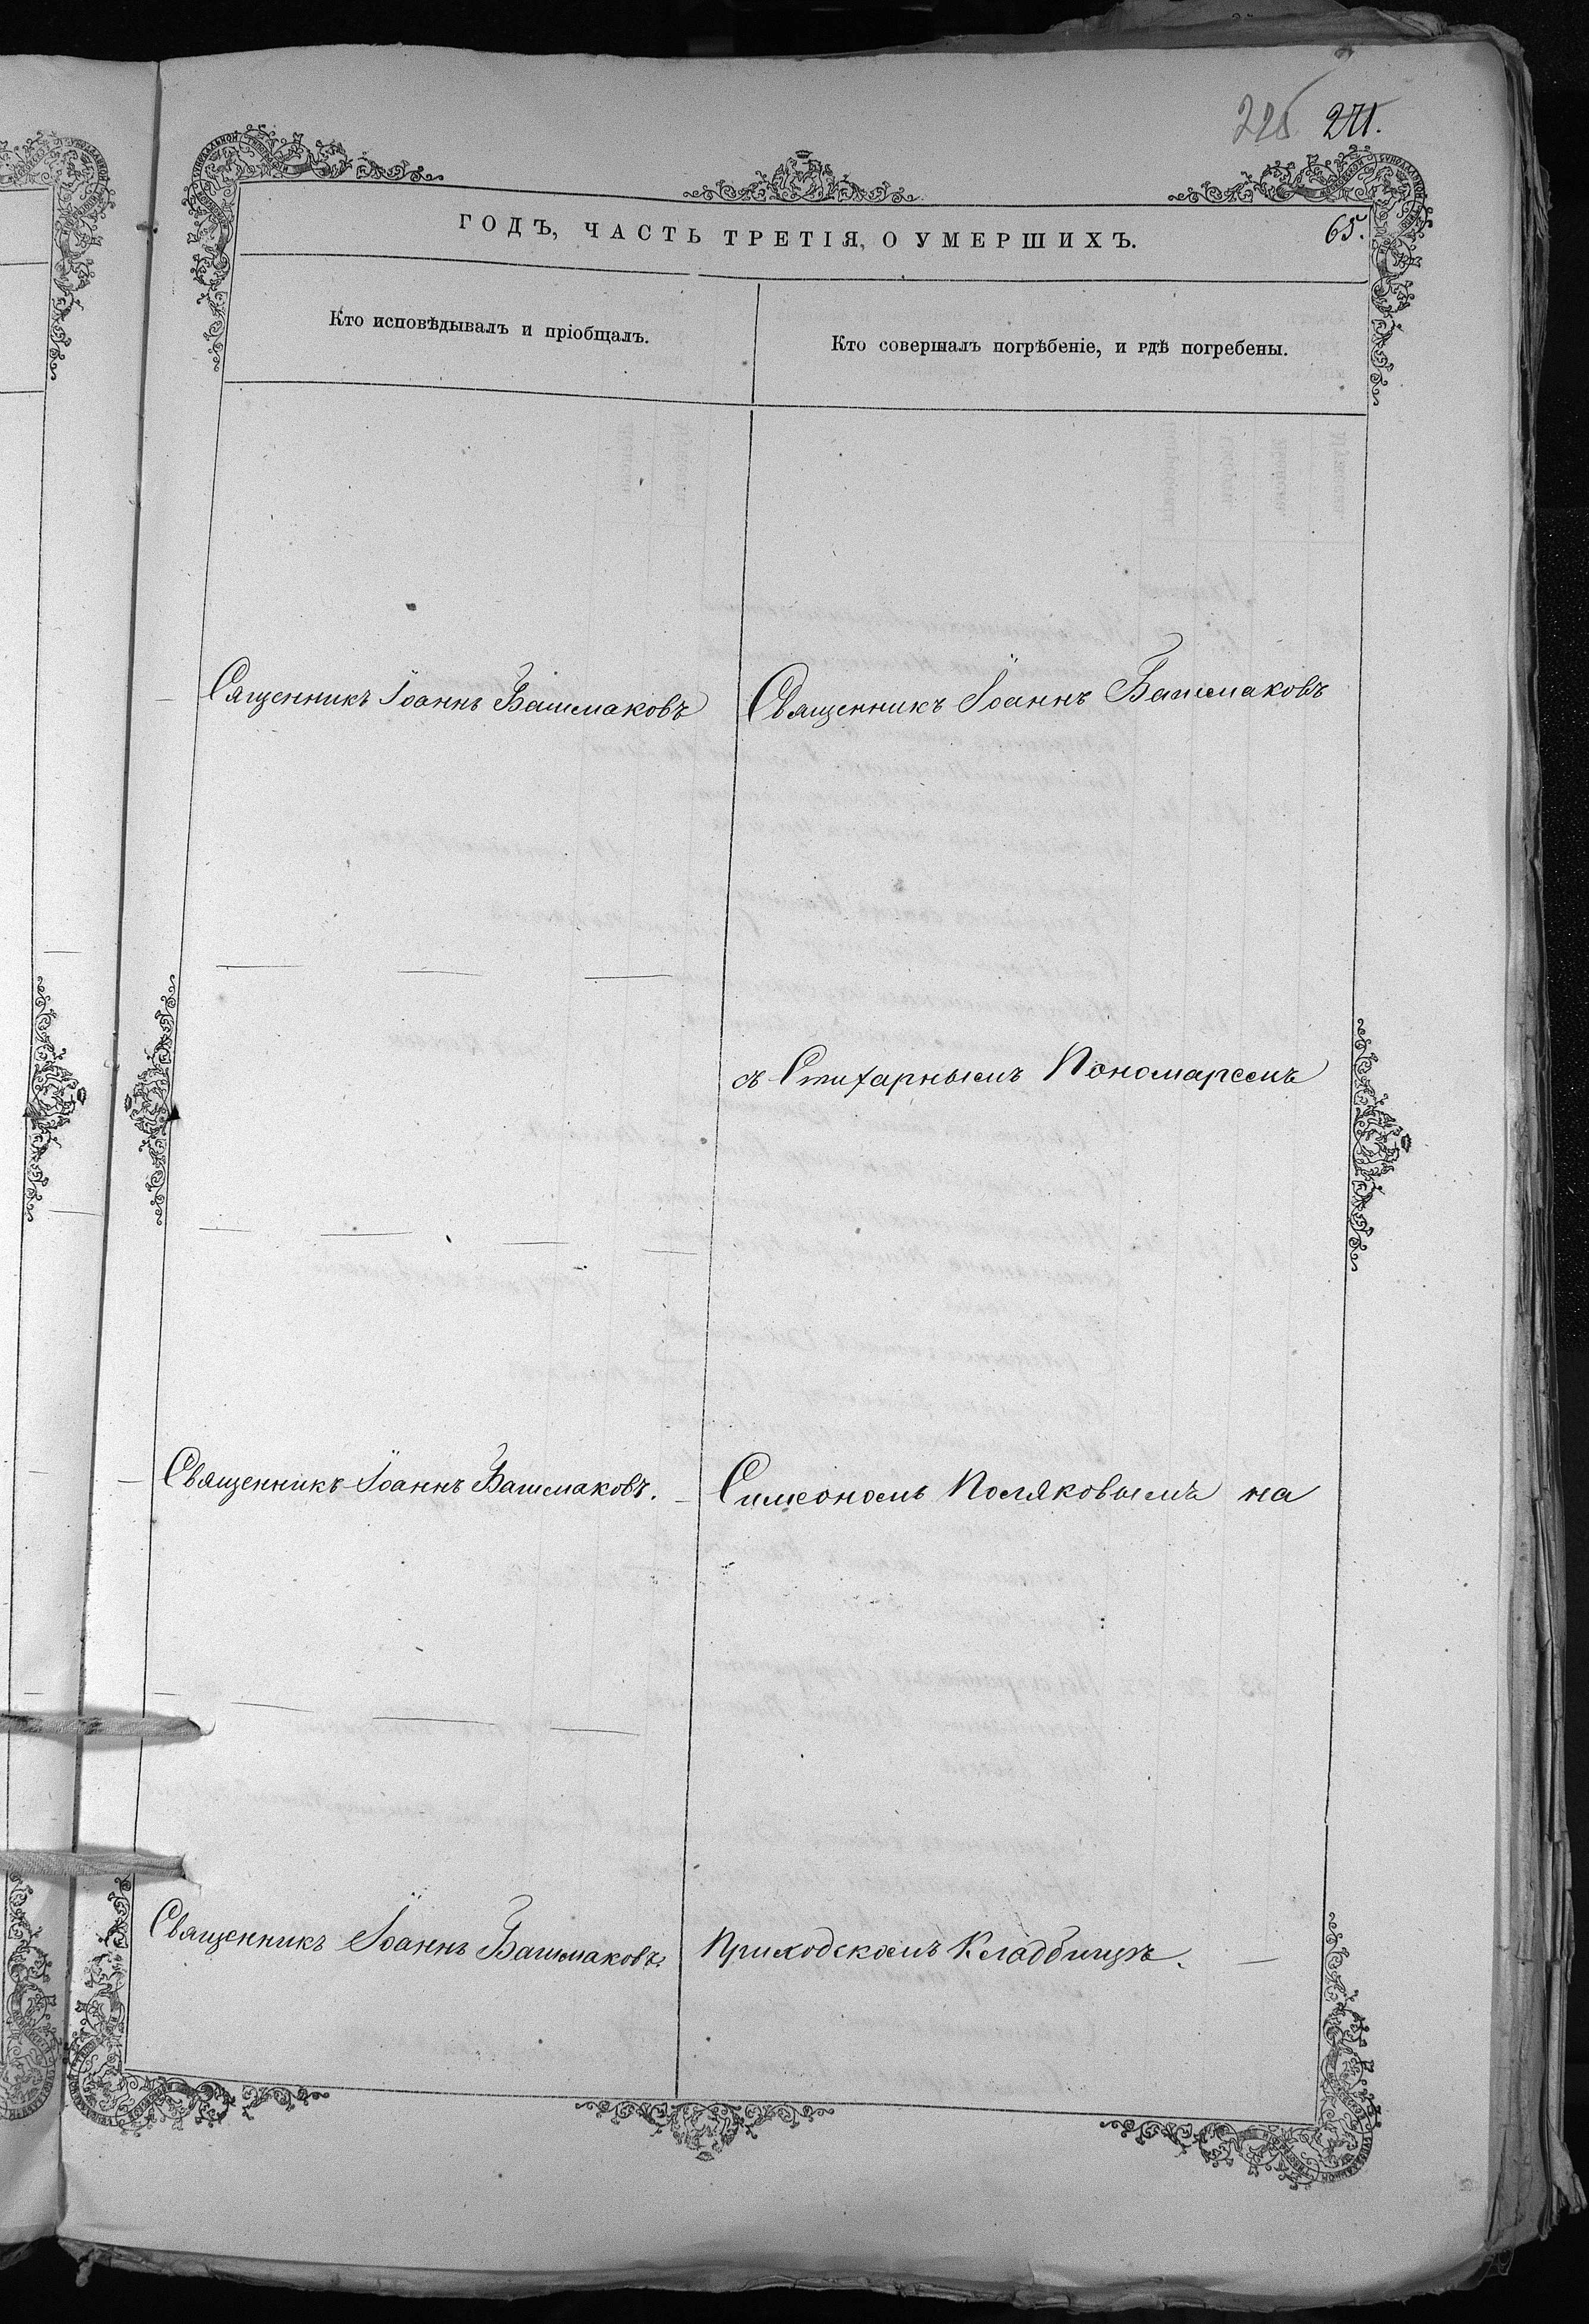 225 271.
ГОДЪ, ЧАСТЬ ТРЕТІЯ, О УМЕРШИХЪ.
65.
Кто исповѣдывалъ и пріобщалъ.
Кто совершалъ погрѣбеніе, и гдѣ погребены.
Сященникъ Іоаннъ Башмаковъ
Священникъ Іоаннъ Башмаковъ
съ Стихарнымъ Пономаремъ
Священникъ Іоаннъ Башмаковъ.
Симеономъ Поляковымъ на
Священникъ Іоаннъ Башмаковъ.
Приходскомъ Кладбищѣ.